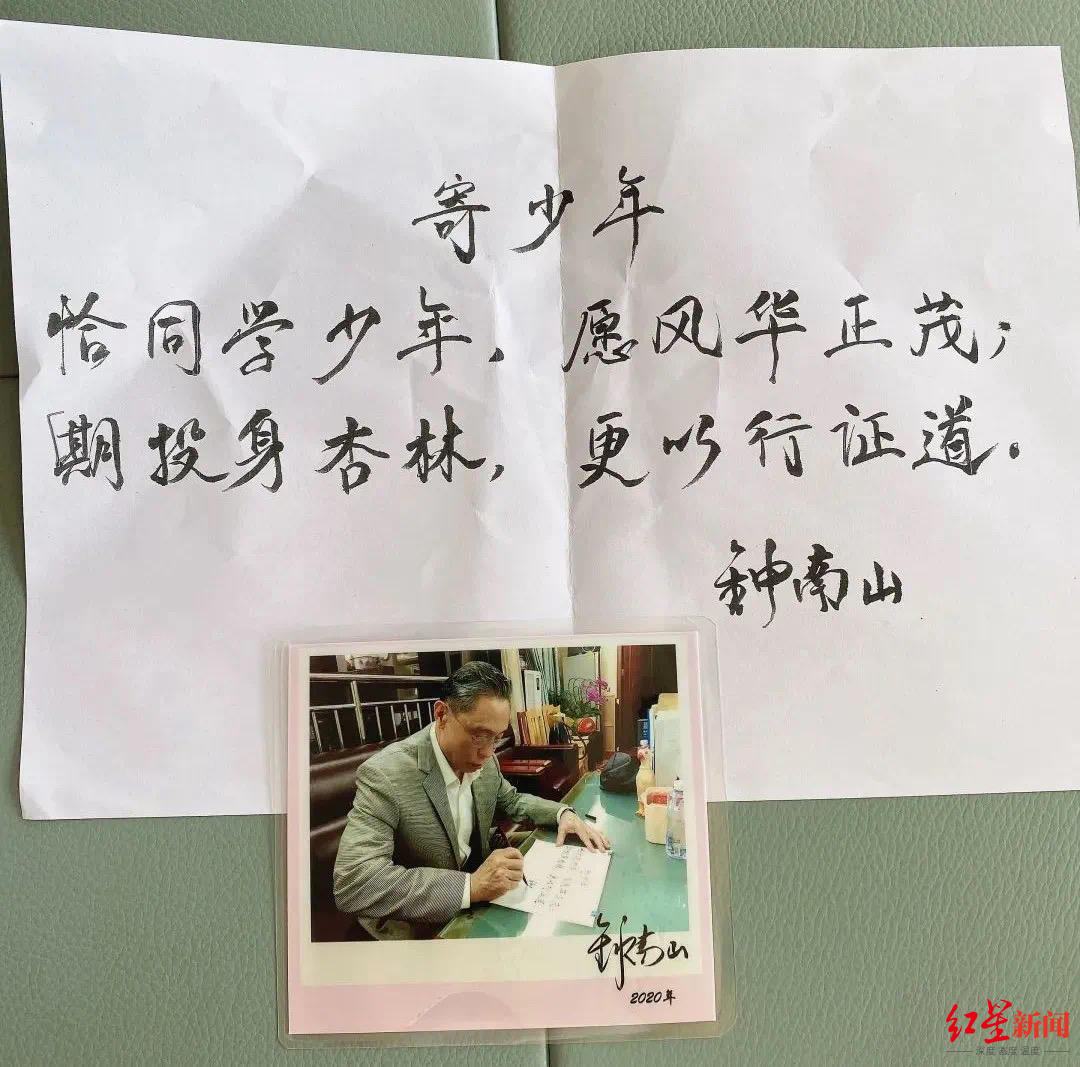 寄少年
恰同学少年，愿风华正茂；
期投身杏林，更以行证道。
钟南山
钟南山
2020年
红星新闻
深度 态度 温度